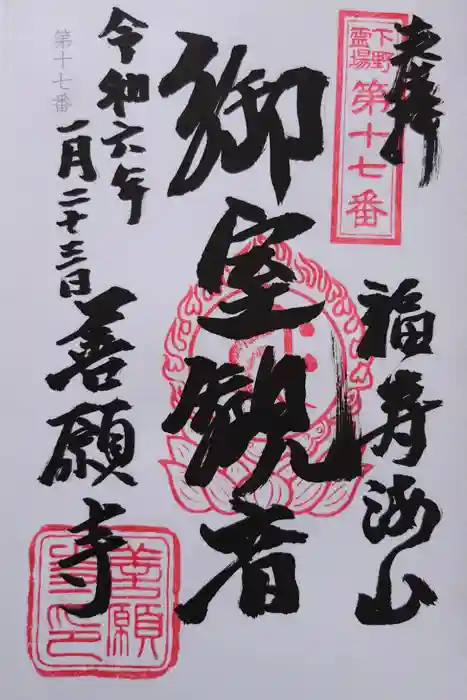 奉拝
下野
霊場
第十七番
福寿海山
御室観音
令和六年
一月二十三日
第十七番
善願寺
善願
寺印